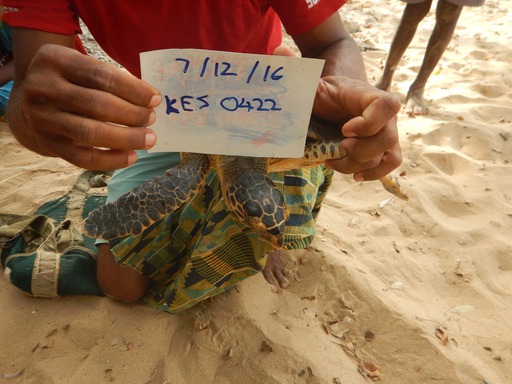 7/12/16
KES 0422